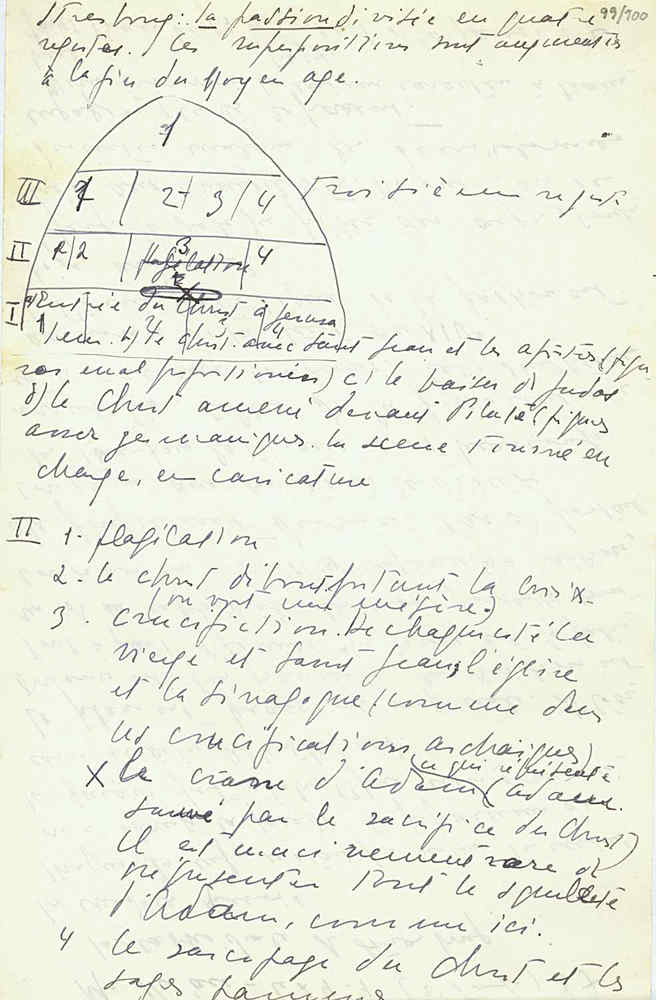 99/100
Strasbourg: la passion divisée en quatre
registres. Les superpositions sont augmentés
à la fin du Moyen age.
1
III 1 2 3 4 Troisième registre
II 1 2 3 4
flagelation
I a) Entrée du Christ à Jerusa
1 2 3 4
lem. b) le christ avec saint Jean et les apôtres (figu
res mal proportionnées) c) le baiser de Judas
d) le Christ amené devant Pilate (figures
assez germaniques. la scene tourné en
charge, en caricature
II 1. flagelation
2. le christ debout portant la croix.
(on voit une mégère)
3. crucifiction. De chaque coté la
vierge et saint Jean, l'église
et la sinagogue (comme dans
les crucifications archaiques)
X le crane d'Adam (Adam
sauvé par le sacrifice du Christ)
Il est rare de
représenter tout le squelette
d'Adam, comme ici.
4 le sarcofage du Christ et les
sages